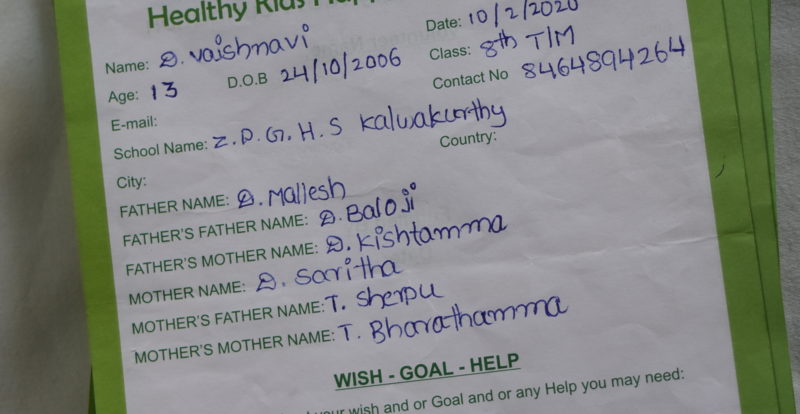 Healthy Kids
Date: 10/2/2020
Name: D. Vaishnavi
Class: 8th T/M
Age: 13 D.O.B 24/10/2006
Contact No 8464894264
E-mail:
School Name: Z.P.G.H.S Kalwakurthy
Country:
City:
FATHER NAME: D. Mallesh
FATHER'S FATHER NAME: D. Baloji
FATHER'S MOTHER NAME: D. Kishtamma
MOTHER NAME: D. Saritha
MOTHER'S FATHER NAME: T. Sherpu
MOTHER'S MOTHER NAME: T. Bharathamma
WISH - GOAL - HELP
your wish and or Goal and or any Help you may need: